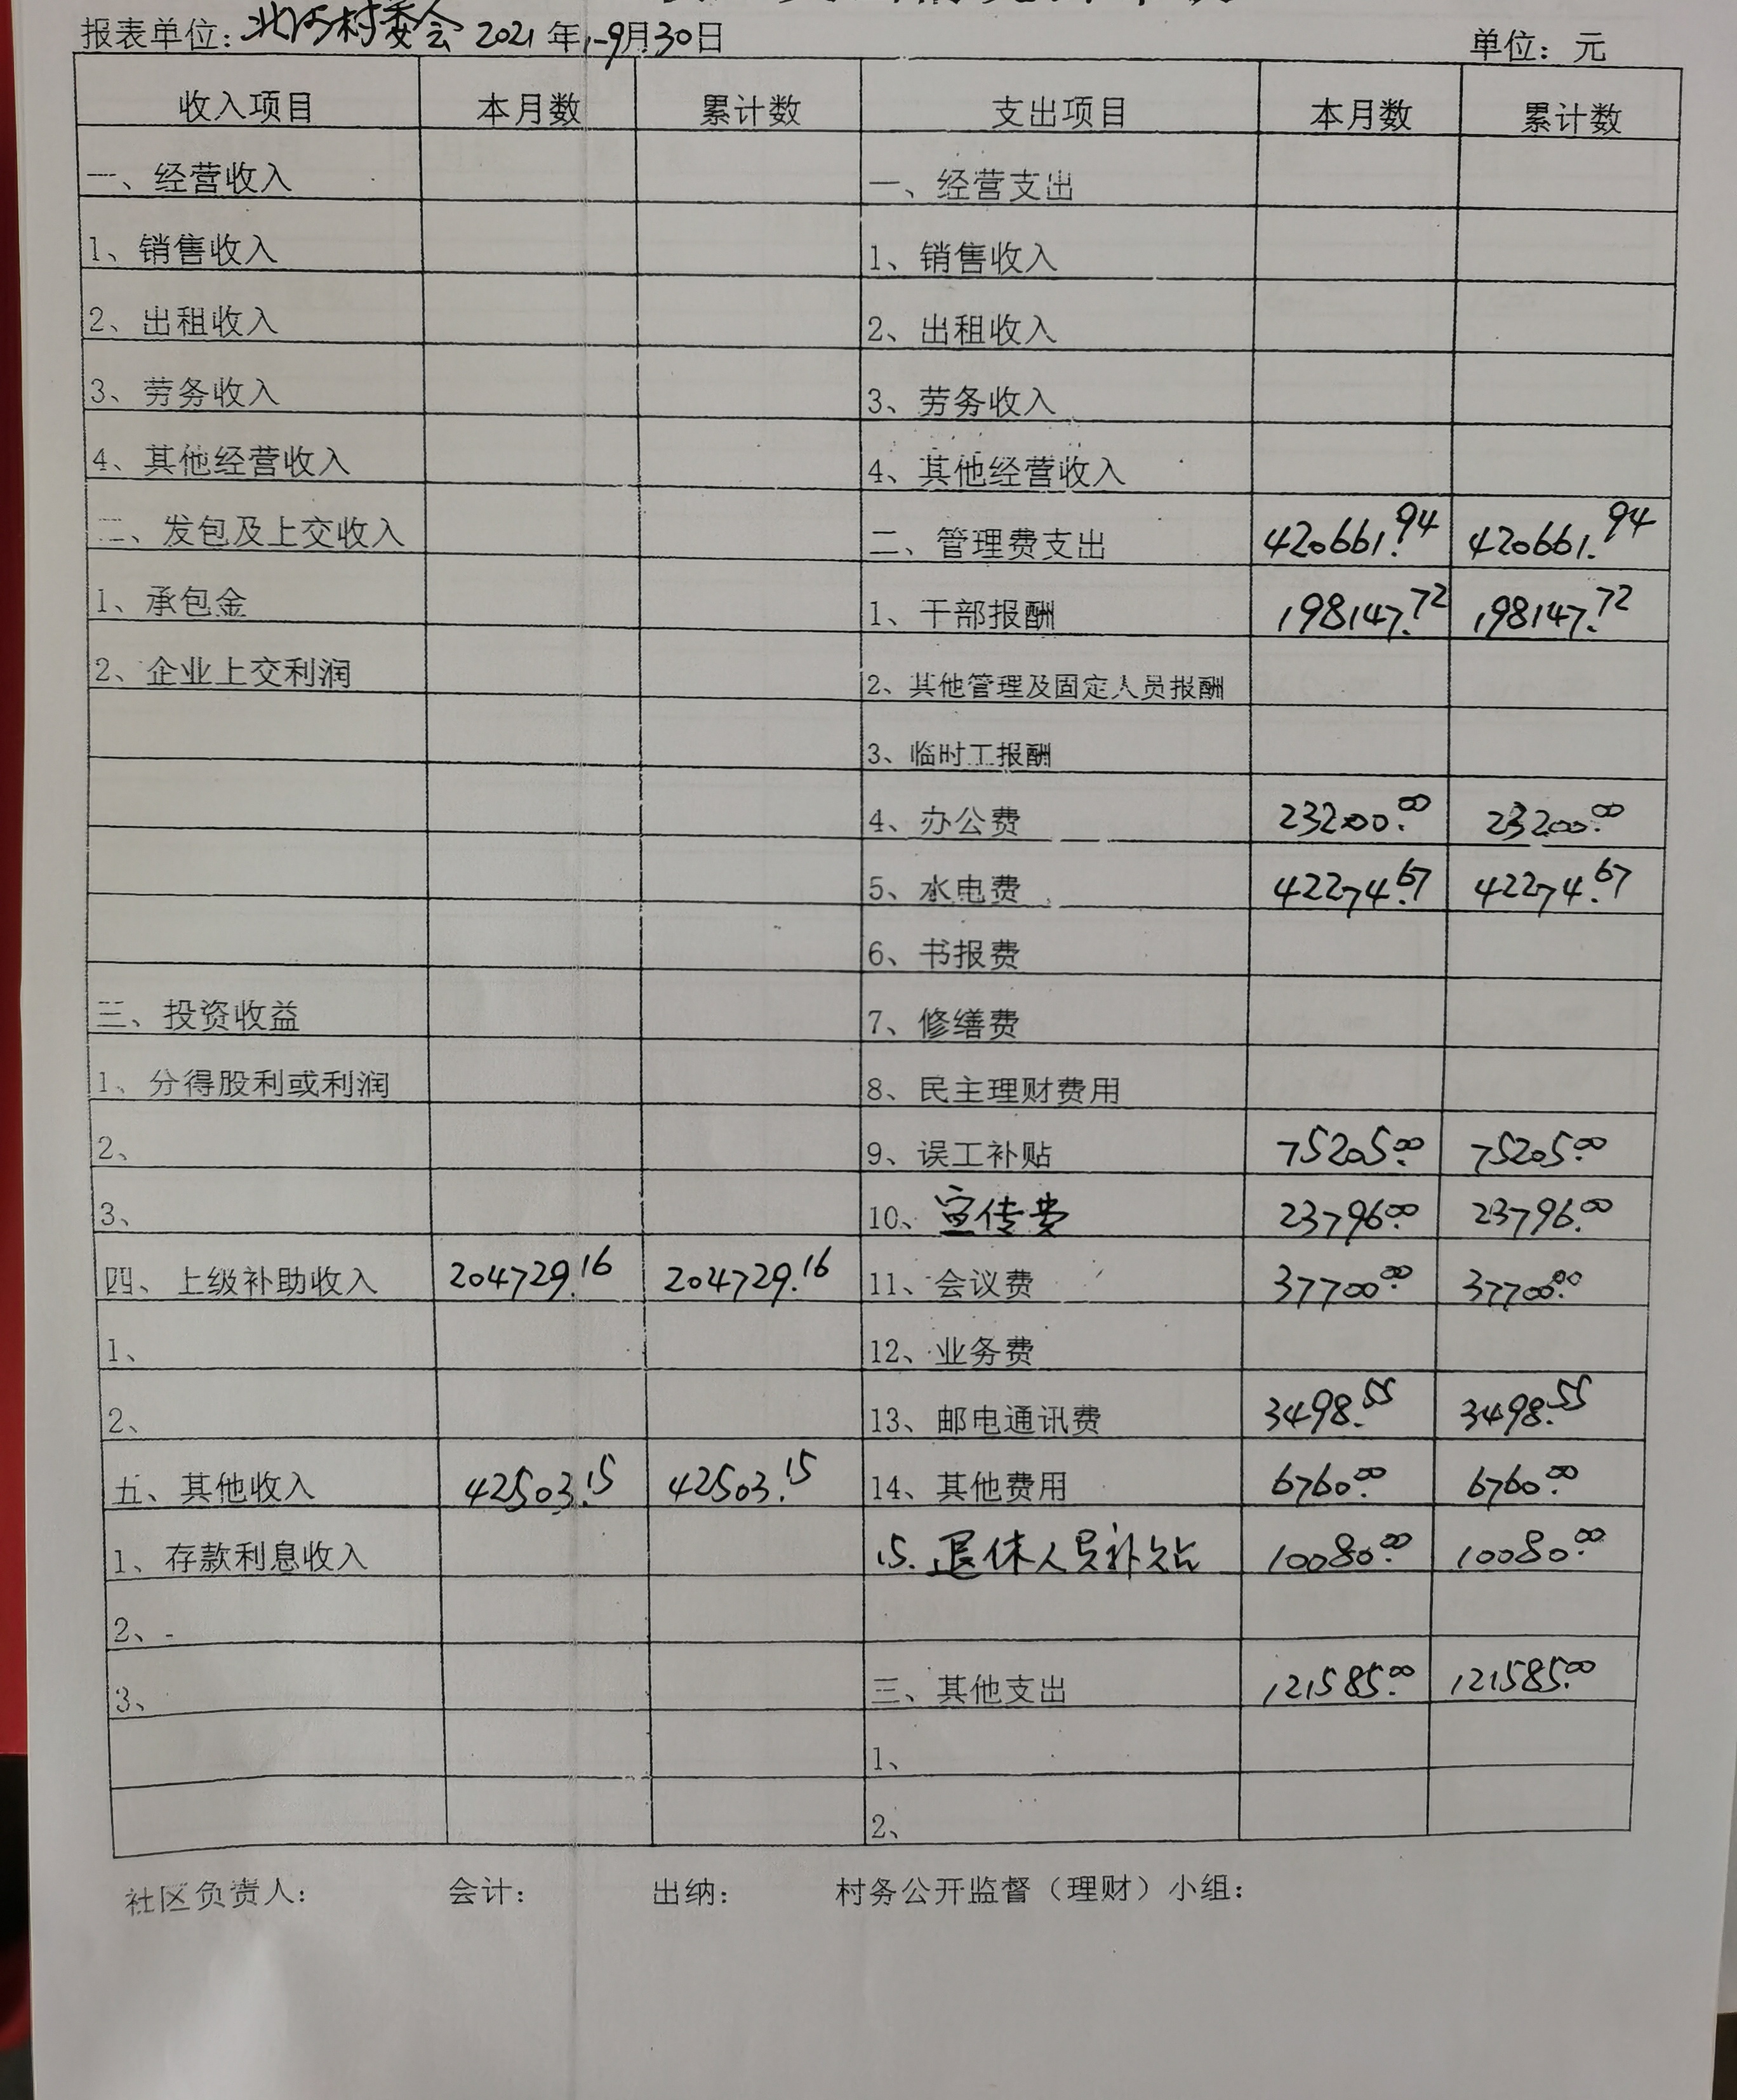 报表单位：北河村委会 2021年1-9月30日 单位：元
收入项目 本月数 累计数 支出项目 本月数 累计数
一、经营收入 一、经营支出
1、销售收入 1、销售收入
2、出租收入 2、出租收入
3、劳务收入 3、劳务收入
4、其他经营收入 4、其他经营收入
二、发包及上交收入 二、管理费支出 420661.94 420661.94
1、承包金 1、干部报酬 198147.72 198147.72
2、企业上交利润 2、其他管理及固定人员报酬
3、临时工报酬
4、办公费 23200.00 23200.00
5、水电费 42274.67 42274.67
6、书报费
三、投资收益 7、修缮费
1、分得股利或利润 8、民主理财费用
2、 9、误工补贴 75205.00 75205.00
3、 10、宣传费 23796.00 23796.00
四、上级补助收入 204729.16 204729.16 11、会议费 37700.00 37700.00
1、 12、业务费
2、 13、邮电通讯费 3498.55 3498.55
五、其他收入 42503.15 42503.15 14、其他费用 6760.00 6760.00
1、存款利息收入 15.退休人员补贴 10080.00 10080.00
2、
3、 三、其他支出 121585.00 121585.00
1、
2、
社区负责人： 会计： 出纳： 村务公开监督（理财）小组：